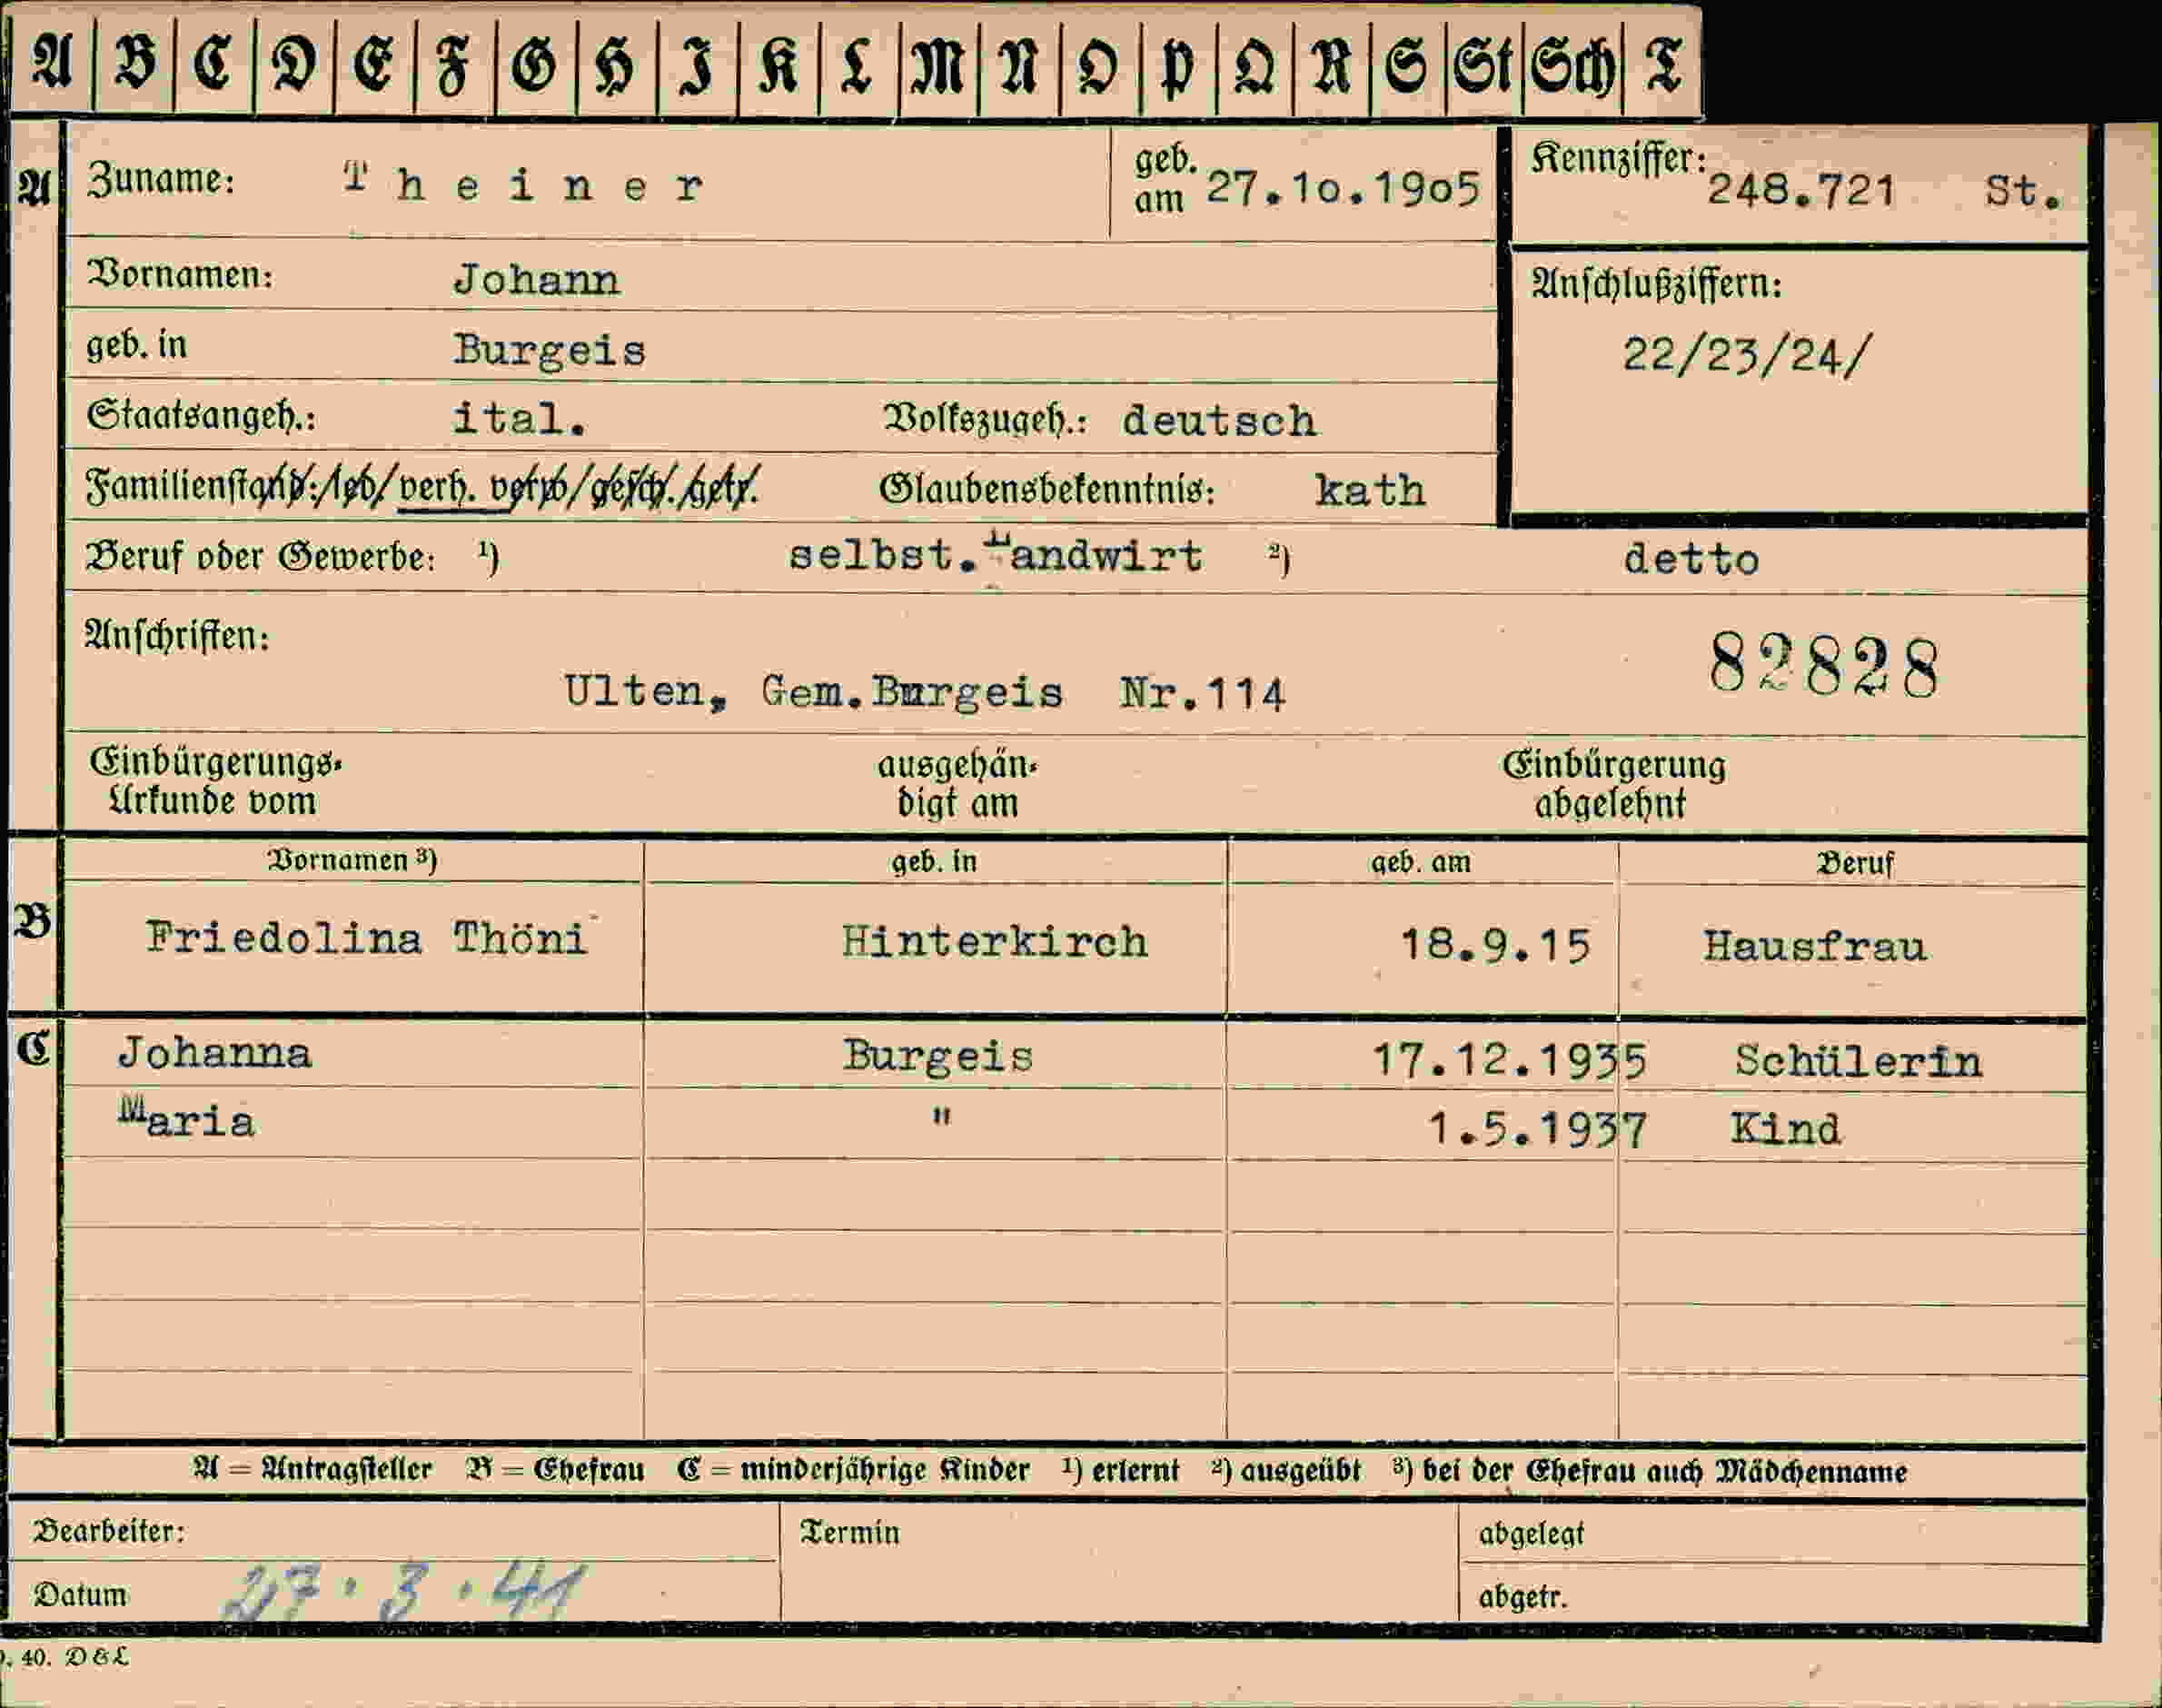 A B C D E F G H I K L M N O P Q R S St Sch T
A Zuname: Theiner geb. am 27.10.1905 Kennziffer: 248.721 St.
Vornamen: Johann Anschlußziffern:
geb. in Burgeis 22/23/24/
Staatsangeh.: ital. Volkszugeh.: deutsch
Familienstand: led/verh. verw/gesch./getr. Glaubensbekenntnis: kath
Beruf oder Gewerbe: ¹) selbst. Landwirt ²) detto
Anschriften: 82828
Ulten, Gem. Burgeis Nr.114
Einbürgerungs- ausgehän- Einbürgerung
Urkunde vom digt am abgelehnt
Vornamen ³) geb. in geb. am Beruf
B Friedolina Thöni Hinterkirch 18.9.15 Hausfrau
C Johanna Burgeis 17.12.1935 Schülerin
Maria " 1.5.1937 Kind
A = Antragsteller B = Ehefrau C = minderjährige Kinder ¹) erlernt ²) ausgeübt ³) bei der Ehefrau auch Mädchenname
Bearbeiter: Termin abgelegt
Datum 27.3.41 abgetr.
. 40. D & L